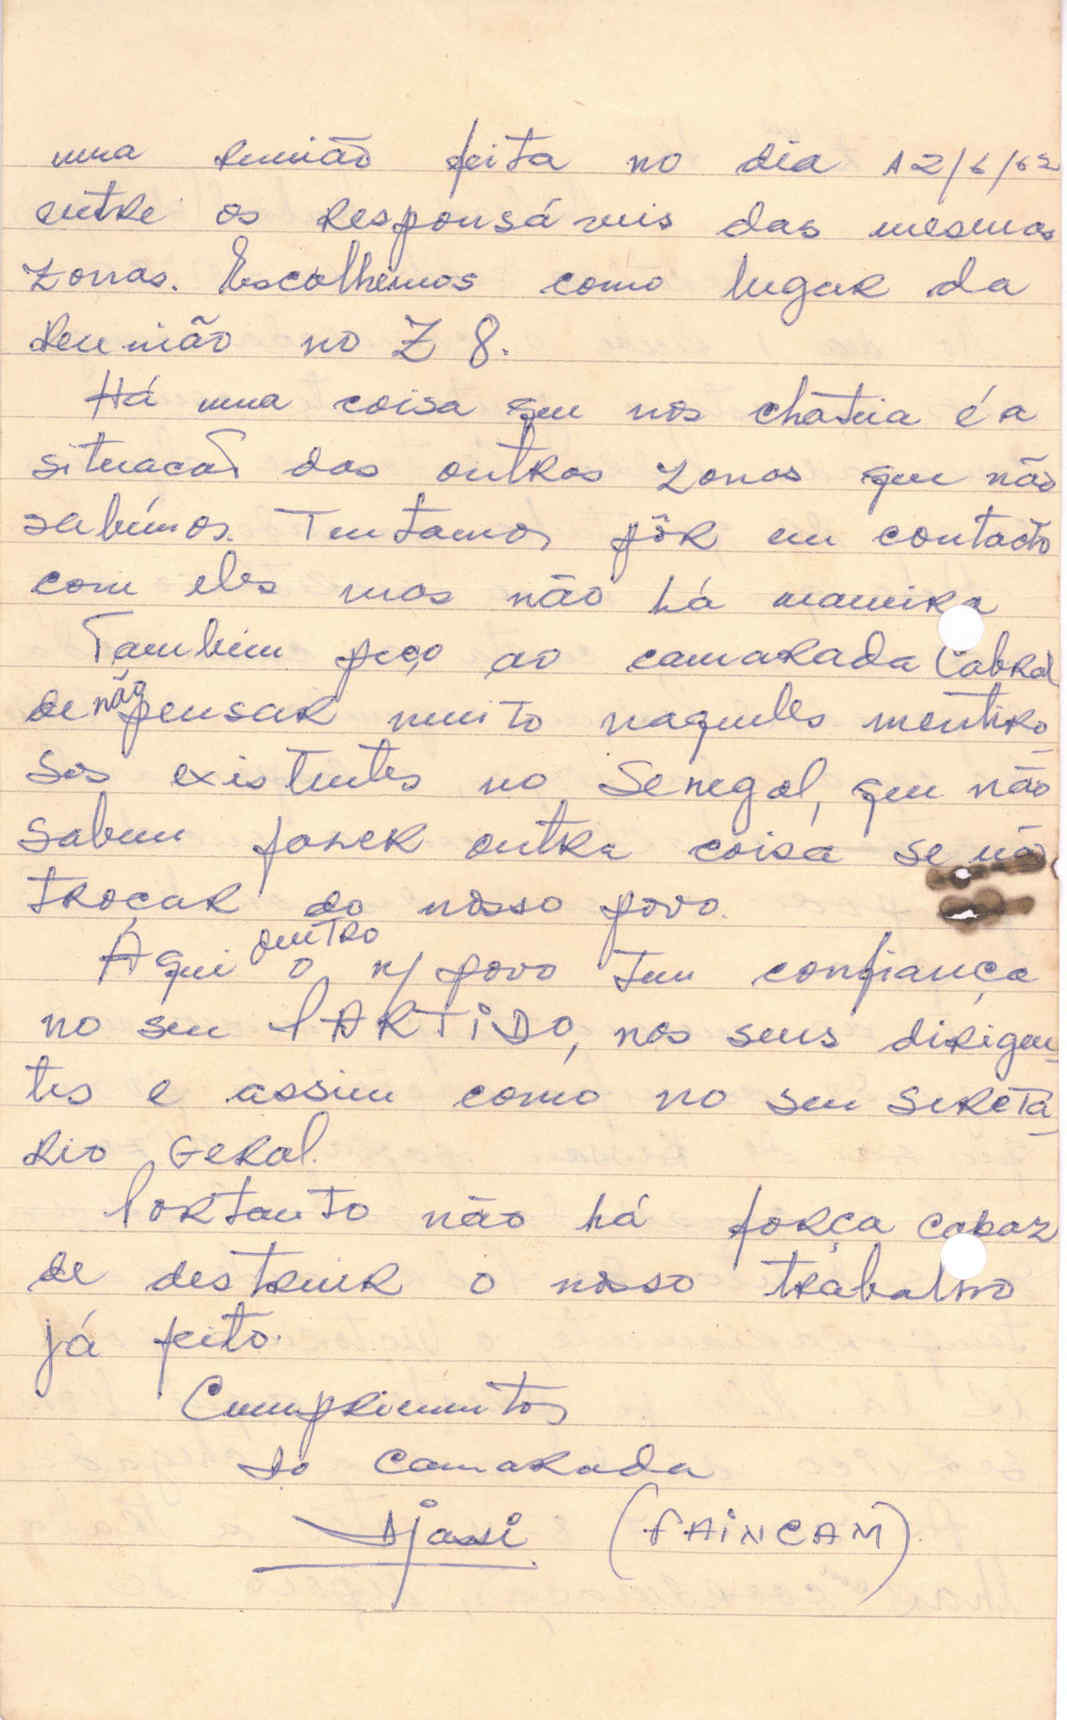 uma reunião feita no dia 12/6/62
entre os responsáveis das mesmas
zonas. Escolhemos como lugar da
reunião no Z 8.
Há uma coisa que nos chateia é a
situacão das outras zonas que não
sabêmos. Tentamos pôr em contacto
com eles mas não há maneira
Também peço ao camarada Cabral
de não pensar muito naqueles mentiro
sos existentes no Senegal, que não
sabem fazer outra coisa se não
troçar do nosso povo.
Aqui dentro o n/ povo tem confiança
no seu PARTiDO, nos seus dirigen_
tes e assim como no seu Seretá_
rio Geral.
Portanto não há força capaz
de destruir o nosso trabalho
já feito.
Cumprimentos
do Camarada
Djassi (FAINCAM)